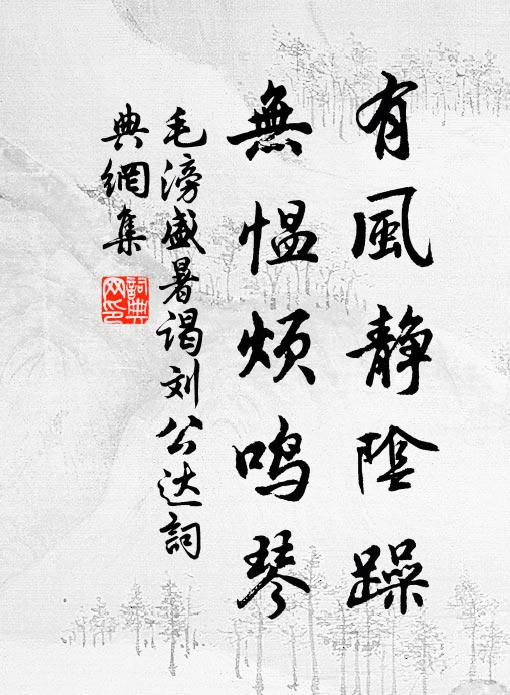 有風静陰躁
無愠烦鸣琴
毛滂盛暑谒刘公达詞
典網集
詞典网印